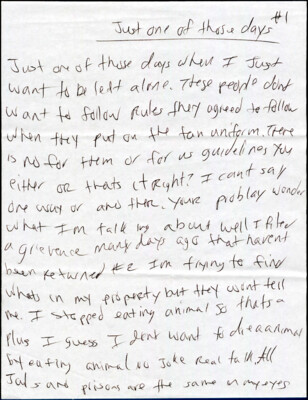 #1
Just one of those days
Just one of those days when I Just
want to be left alone. These people dont
want to follow rules they agreed to follow
when they put on the tan uniform. There
is no for them or for us guidelines you
either or thats it Right? I cant say
one way or another. Your problay wonder
what I'm talking about well I filed
a grievence many days ago that havent
been returned #2 Im trying to find
whats in my property but they wont tell
me. I stopped eating animal so thats a
plus I guess I dont want to die a animal
by eating animal no joke Real talk. All
Jails and prisons are the same in my eyes